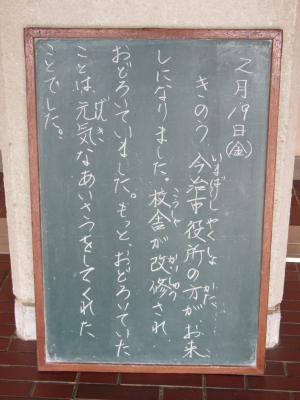 2月19日(金)
きのう 今治市役所の方が、お来
しになりました。校舎が改修され
おどろいていました。もっと、おどろいていた
ことは、元気なあいさつをしてくれた
ことでした。